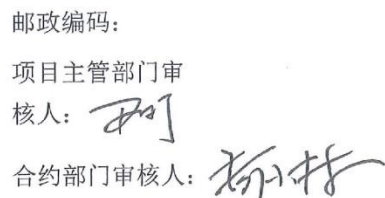 邮政编码：
项目主管部门审
核人：
合约部门审核人：